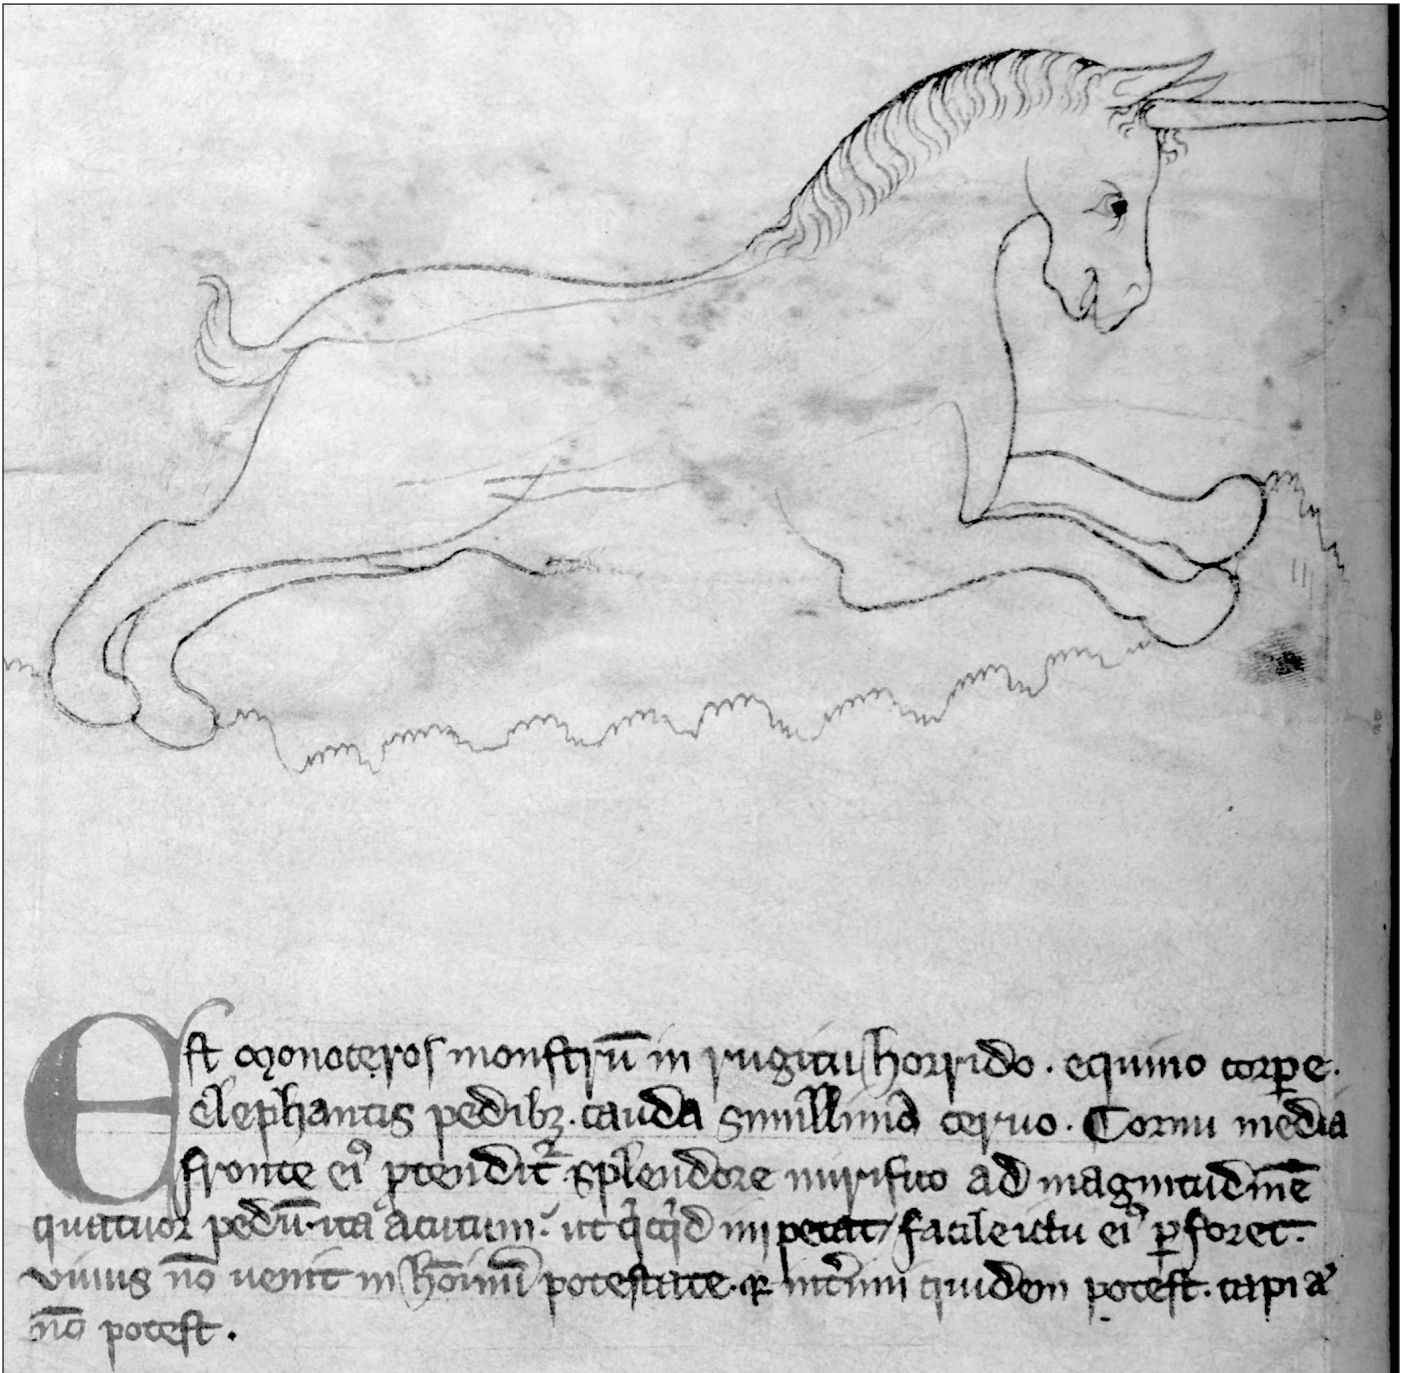 Est monoceros monstrū in rugitu horrido. equino corꝑe.
elephantis pedibꝫ. cauda simillima ceruo. Cornu media
fronte eiꝰ ꝓtenditᷣ splendore mirifico ad magnitudinē
quatuor pedū. ita acutum. ut qͥcqͥd petat facile ictu eiꝰ ꝑforet.
Viuus nō uenit in hōinū potestate. ⁊ intimi quidem potest. capi
nō potest.